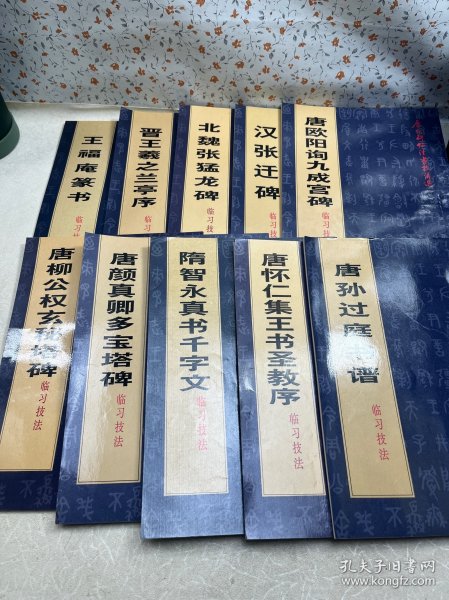 王福庵篆书
临习
晋王羲之兰亭序
临习技
北魏张猛龙碑
临习技
汉张迁碑
临习
唐欧阳询九成宫碑
临习技
唐柳公权玄塔碑
临习技法
唐颜真卿多宝塔碑
临习技法
隋智永真书千字文
临习技法
唐怀仁集王书圣教序
临习技法
唐孙过庭谱
临习技法
孔夫子旧书网
www.kongfz.com